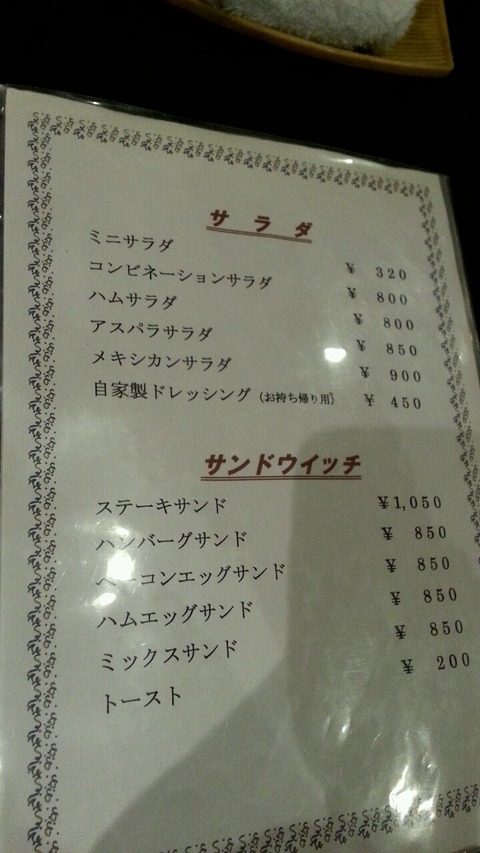 サラダ
ミニサラダ ¥ 320
コンビネーションサラダ ¥ 800
ハムサラダ ¥ 800
アスパラサラダ ¥ 850
メキシカンサラダ ¥ 900
自家製ドレッシング (お持ち帰り用) ¥ 450
サンドウイッチ
ステーキサンド ¥1,050
ハンバーグサンド ¥ 850
ベーコンエッグサンド ¥ 850
ハムエッグサンド ¥ 850
ミックスサンド ¥ 850
トースト ¥ 200